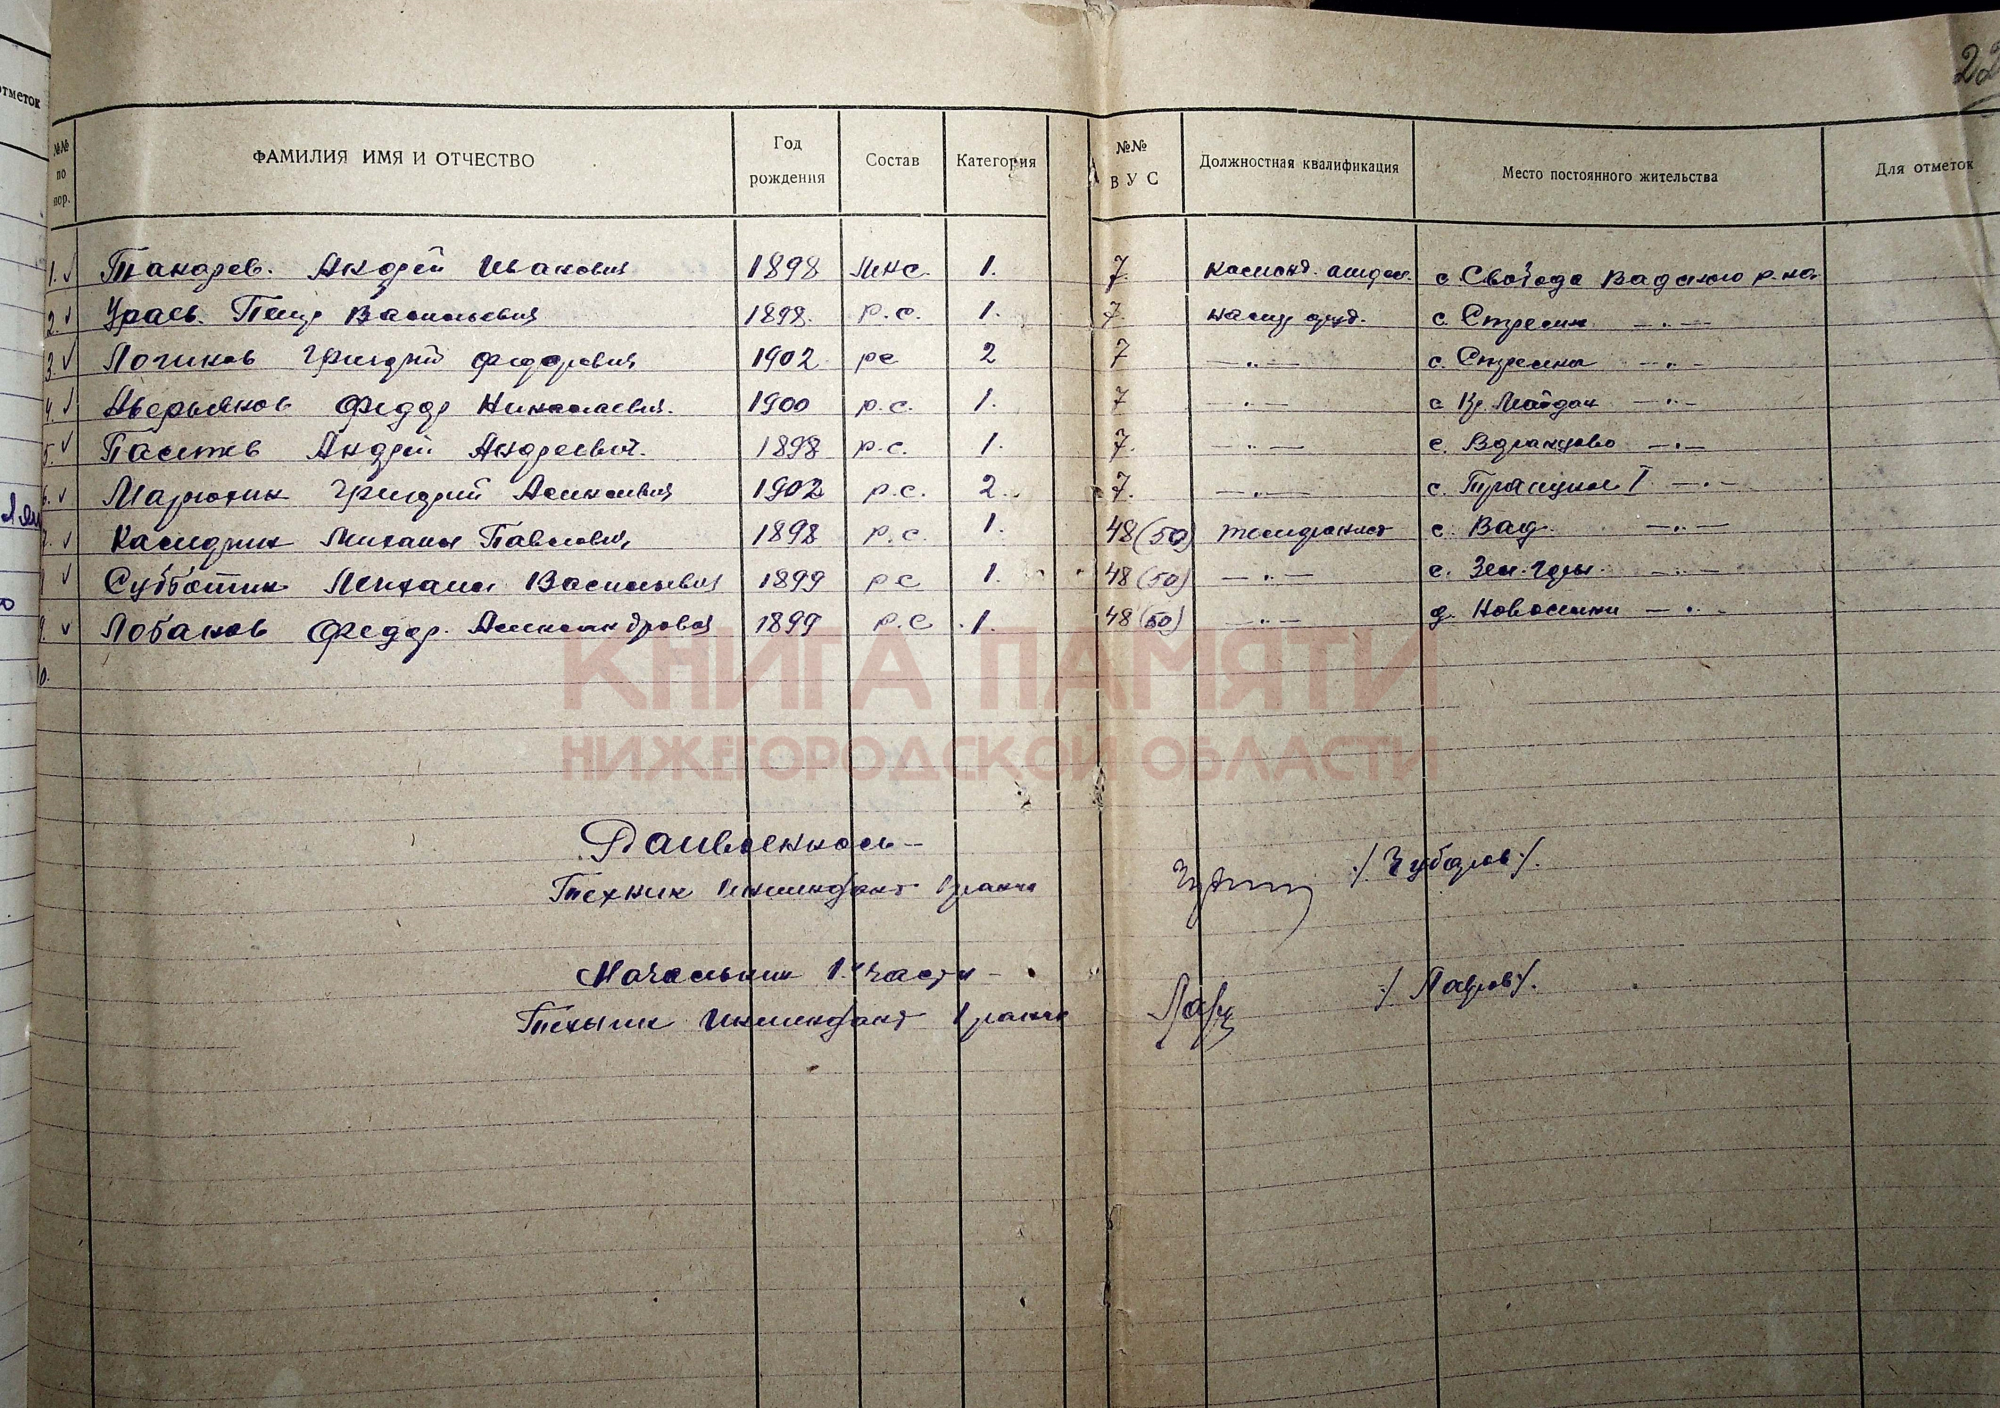 22
отметок
№№ по пор. ФАМИЛИЯ ИМЯ И ОТЧЕСТВО Год рождения Состав Категория №№ ВУС Должностная квалификация Место постоянного жительства Для отметок
1. Андрей Иванович 1898 мнс 1. 7. с. Свобода Вадского р-на
2. Петр Васильевич 1898. р.с. 1. 7. с. —„—
3. Логинов Григорий Федорович 1902 рс 2 7 —„— с. —„—
4. Аверьянов Федор Николаевич. 1900 р.с. 1. 7 —„— с. Кр. Майдан —„—
5. Андрей Андреевич. 1898 р.с. 1. 7. —„— с. —„—
6. Марюхин Григорий Алексеевич 1902 р.с. 2. 7. —„— с. I —„—
7. Михаил Павлович 1898 р.с. 1. 48(50) телефонист с. Вад. —„—
8 Субботин Михаил Васильевич 1899 рс 1. 48(50) —„— с. —„—
9. Лобанов Федор. Александрович 1899 р.с 1. 48(50) —„— д. Новоселки —„—
10.
КНИГА ПАМЯТИ
НИЖЕГОРОДСКОЙ ОБЛАСТИ
Райвоенком —
Техник Интендант 1 ранга /Чубаров/.
Начальник 1. части —
Техник Интендант 1 ранга /Лавров/.